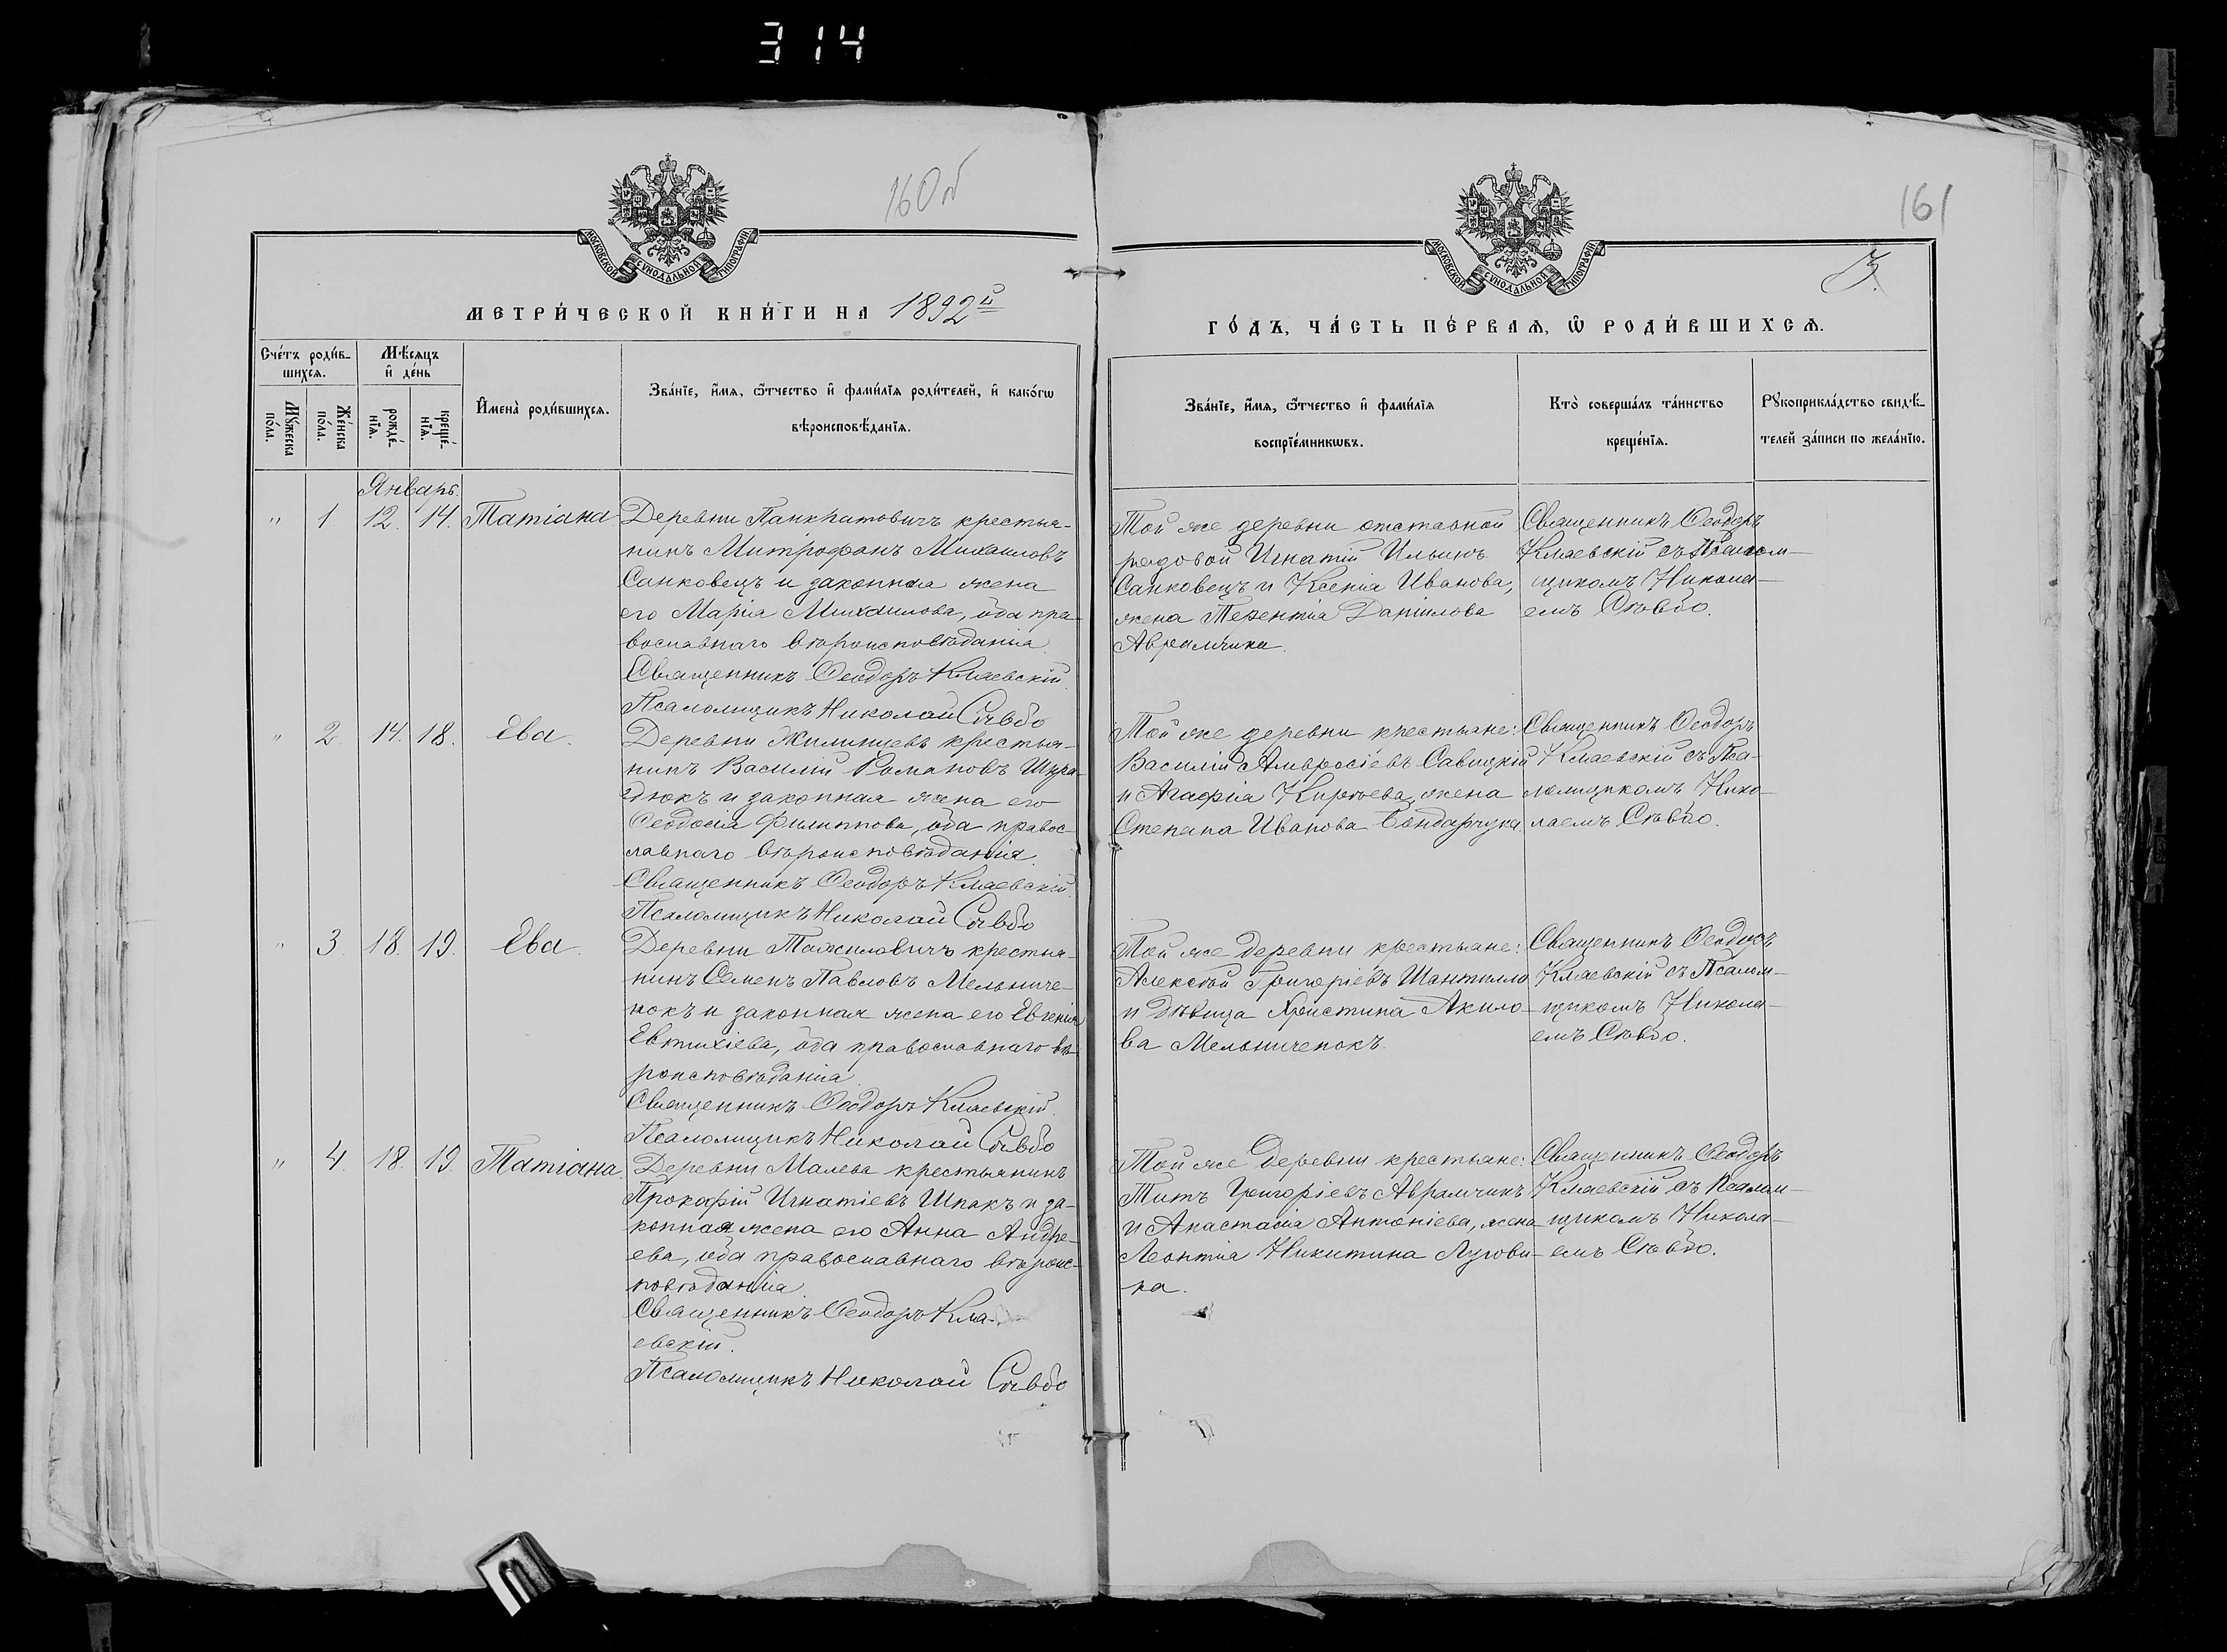 314
160 об
161
3.
МОСКОВСКОЙ СѴНОДАЛЬНОЙ ТИПОГРАФІИ
МОСКОВСКОЙ СѴНОДАЛЬНОЙ ТИПОГРАФІИ
МЕТРИ́ЧЕСКОЙ КНИ́ГИ НА 1892й
ГО́ДЪ, ЧА́СТЬ ПЕ́РВАѦ, Ѡ РОДИ́ВШИХСѦ.
Сче́тъ роди́в-
шихсѧ.
Мѣ́сѧцъ
и҆ де́нь
Мꙋ́жеска
по́ла.
Же́нска
по́ла.
рожде́-
нїѧ.
креще́-
нїѧ.
И҆мена̀ роди́вшихсѧ.
Зва́нїе, и҆́мѧ, ѻ҆́тчество и҆ фами́лїѧ роди́телей, и҆ како́гѡ
вѣроисповѣ́данїѧ.
Зва́нїе, и҆́мѧ, ѻ҆́тчество и҆ фами́лїѧ
воспрїе́мникѡвъ.
Кто̀ соверша́лъ та́инство
креще́нїѧ.
Рꙋкоприкла́дство свидѣ́-
телей за́писи по жела́нїю.
Январь.
" 1. 12. 14. Татіана
Деревни Панкратовичъ крестья-
нинъ Митрофанъ Михаиловъ
Санковецъ и законная жена
его Марія Михаилова, оба пра-
вославнаго вѣроисповѣданія.
Священникъ Ѳеодоръ Кляевскій.
Псаломщикъ Николай Сѣвбо
Той же деревни отставной
рядовой Игнатій Ильинъ
Санковецъ и Ксенія Иванова,
жена Терентія Данилова
Аврамчика.
Священникъ Ѳеодоръ
Кляевскій съ Псалом-
щикомъ Никола-
емъ Сѣвбо.
" 2. 14. 18. Ева.
Деревни Жилинцевъ крестья-
нинъ Василій Романовъ
и законная жена его
Ѳеодосія Филиппова, оба правос-
лавнаго вѣроисповѣданія.
Священникъ Ѳеодоръ Кляевскій.
Псаломщикъ Николай Сѣвбо
Той же деревни крестьяне:
Василій Амвросіевъ Савицкій
и Агафія Киріева, жена
Степана Иванова Бондарчука
Священникъ Ѳеодоръ
Кляевскій съ Пса-
ломщикомъ Нико-
лаемъ Сѣвбо.
" 3. 18. 19. Ева.
Деревни Тажиловичъ крестья-
нинъ Семенъ Павловъ Мельниче-
нокъ и законная жена его Евгенія
Евтихіева, оба православнаго вѣ-
роисповѣданія.
Священникъ Ѳеодоръ Кляевскій.
Псаломщикъ Николай Сѣвбо
Той же деревни крестьяне:
Алексѣй Григоріевъ Шантило
и дѣвица Христина Акило-
ва Мельниченокъ.
Священникъ Ѳеодоръ
Кляевскій съ Псалом-
щикомъ Никола-
емъ Сѣвбо.
" 4. 18. 19. Татіана.
Деревни Малева крестьянинъ
Прокофій Игнатіевъ Шпакъ и за-
конная жена его Анна Андре-
ева, оба православнаго вѣроис-
повѣданія.
Священникъ Ѳеодоръ Кля-
евскій.
Псаломщикъ Николай Сѣвбо
Той же деревни крестьяне:
Титъ Григоріевъ Аврамчикъ
и Анастасія Антоніева, жена
Леонтія Никитина Лугови-
ка.
Священникъ Ѳеодоръ
Кляевскій съ Псалом-
щикомъ Никола-
емъ Сѣвбо.